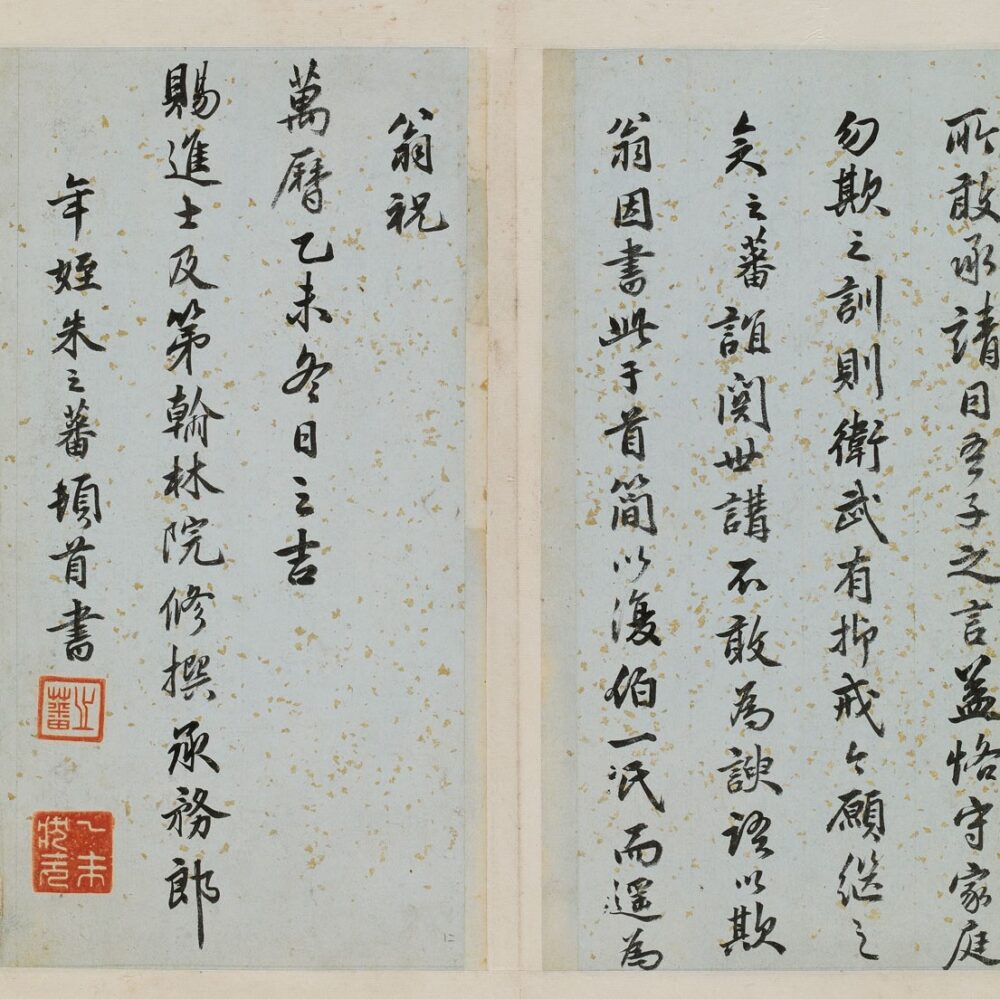 所敢承請目吾子之言盖恪守家庭
勿欺之訓則衛武有抑戒今願繼之
矣之蕃誼関世講不敢為諛語以欺
翁因書此于首簡以復伯一氏而遥為
翁祝
萬曆乙未冬日之吉
賜進士及第翰林院修撰承務郎
年姪朱之蕃頓首書
之蕃
乙未狀元